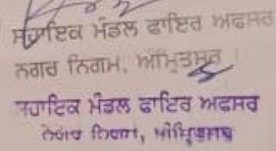 ਸਹਾਇਕ ਮੰਡਲ ਫਾਇਰ ਅਫਸਰ
ਨਗਰ ਨਿਗਮ, ਅੰਮ੍ਰਿਤਸਰ
ਸਹਾਇਕ ਮੰਡਲ ਫਾਇਰ ਅਫਸਰ
ਨਗਰ ਨਿਗਮ, ਅੰਮ੍ਰਿਤਸਰ